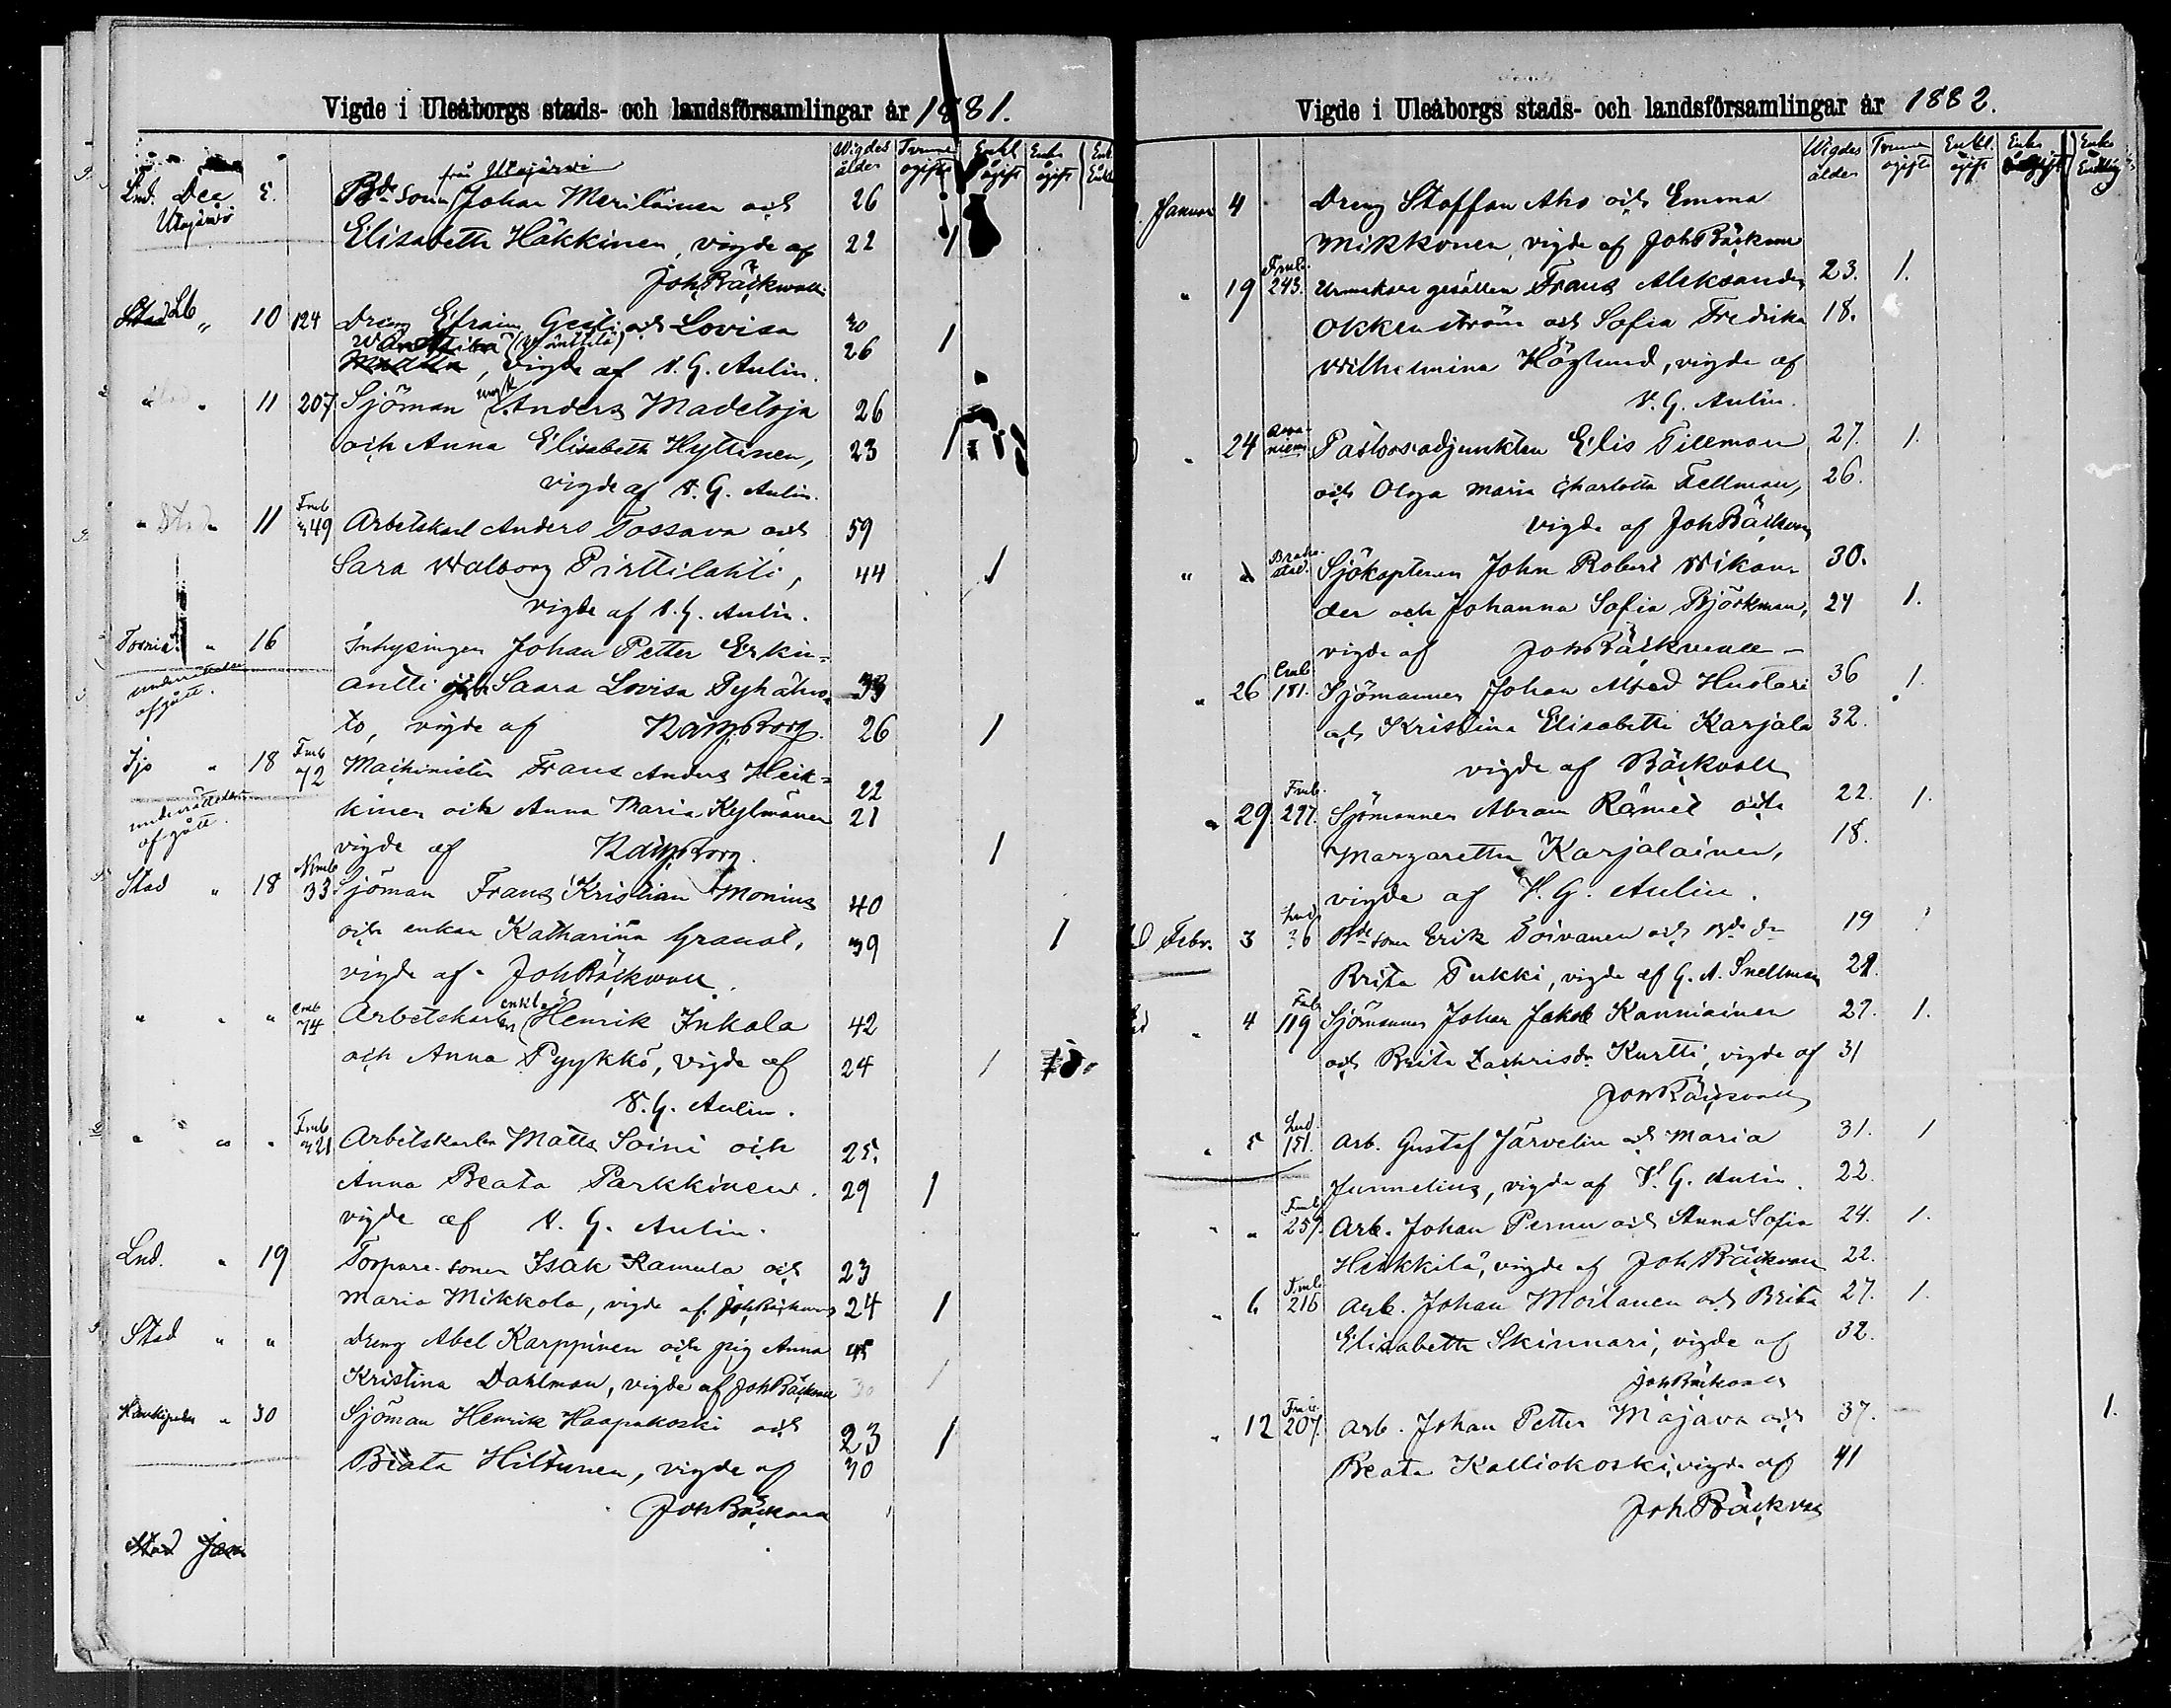 Vigde i Uleåborgs stads- och landsförsamlingar år 1881.
Wigdes ålder
Lnd. Dec 5. från Utajärvi
Utajärvi
Bde son Johan Meriläinen och 26
Elisabeth Häkkinen, vigde af 22 1
Joh Bäckvall
Lb " 10 124 Dreng Efraim Gesti och Lovisa 30
(Wänttilä) 26 1
, vigde af V. G. Aulin.
" " 11 207 Sjöman Anders Madetoja 26
och Anna Elisabeth Hyttinen, 23 1
vigde af V. G. Aulin.
" Stad " 11 Fmb 349 Arbetskarl Anders Tossava och 59
Sara Walborg Pirttilahti, 44 1
vigde af V. G. Aulin.
Torneå " 16 Inhysingen Johan Petter Erkin-
underrättelse afgått.
antti och Saara Lovisa Pyhäluo- 33
to, vigde af 26 1
Ijo " 18 Fmb 72 Machinisten Frans Anders Heik- 22
underrättelse afgått.
kinen och Anna Maria Kylmänen 21
vigde af 1
Stad " 18 Nmb 33 Sjöman Frans Kristian Monius 40
och enkan Katharina Granat, 39 1
vigde af Joh Bäckvall
" " " Cmb 74 Arbetskarlen enkl. Henrik Inkala 42
och Anna Pyykkö, vigde af 24 1
V. G. Aulin.
" " " Fmb 321 Arbetskarlen Matts Soini och 25.
Anna Beata Parkkinen. 29 1
vigde af V. G. Aulin.
Lnd. " 19 Torpare sonen Isak Kamula och 23
Maria Mikkola, vigde af Joh Bäckvall 24 1
Stad " " Dreng Abel Karppinen och pig Anna 45
Kristina Dahlman, vigde af Joh Bäckvall 30 1
Haukipudas " 30 Sjöman Henrik Haapakoski och 23 1
Beata Hiltunen, vigde af 30
Joh Bäckvall
Stad Jan
Vigde i Uleåborgs stads- och landsförsamlingar år 1882.
Wigdes ålder
Januar 4 Dreng Staffan Aho och Emma
Mikkonen, vigde af Joh Bäckvall
" 19 Fmb. 243. Urmakare gesällen Frans Aleksander 23. 1.
Okkenström och Sofia Fredrika 18.
Wilhelmina Höglund, vigde af
V. G. Aulin.
" 24 Pastorsadjunkten Elis Tillman 27. 1.
och Olga Maria Charlotta Fellman, 26.
vigde af Joh Bäckvall
" " Brahestad. Sjökaptenen John Robert Wikan- 30.
der och Johanna Sofia Björkman, 24 1.
vigde af Joh Bäckvall –
" 26 Cmb 181. Sjömannen Johan Alfred Huotari 36 1.
och Kristina Elisabeth Karjala 32.
vigde af Bäckvall
" 29. Fmb. 297. Sjömannen Abram Rämet och 22. 1.
Margaretha Karjalainen, 18.
vigde af V. G. Aulin.
Febr. 3 Lnd 36 Bde sonen Erik Toivanen och Bde dr 19 1
Brita Pukki, vigde af G. A. Snellman
" 4 Fmb 119 Sjömannen Johan Jakob Kanniainen 27. 1.
och Brita Zachrisdr Kurtti, vigde af 31
Joh Bäckvall
" 5 Lnd. 151. Arb. Gustaf Järvelin och Maria 31. 1
Junnelius, vigde af V. G. Aulin. 22.
" " Fmb 257. Arb. Johan Pernu och Anna Sofia 24. 1.
Heikkilä, vigde af Joh Bäckvall 22.
" 6 Fmb 216 Arb. Johan Moilanen och Brita 27. 1.
Elisabeth Skinnari, vigde af 32.
Joh Bäckvall
" 12 Fmb 207. Arb. Johan Petter Majava och 37. 1.
Beata Kalliokoski, vigde af 41
Joh Bäckvall